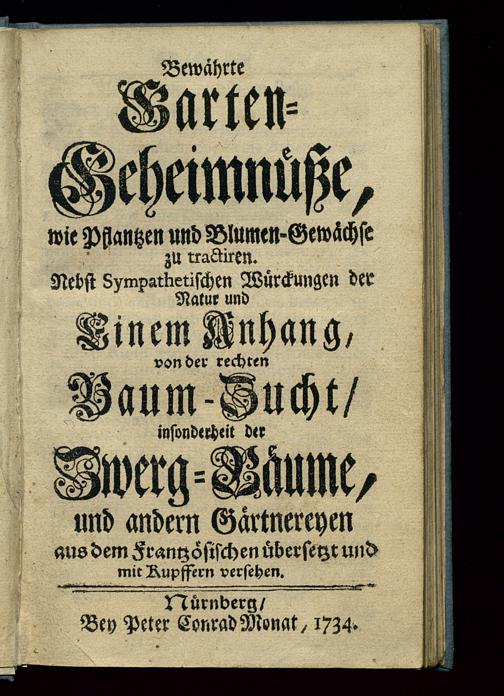 Bewährte
Garten-
Geheimnüße,
wie Pflantzen und Blumen-Gewächse
zu tractiren.
Nebst Sympathetischen Würckungen der
Natur und
Einem Anhang,
von der rechten
Baum-Zucht/
insonderheit der
Zwerg-Bäume,
und andern Gärtnereyen
aus dem Frantzösischen übersetzt und
mit Kupffern versehen.
Nürnberg/
Bey Peter Conrad Monat, 1734.